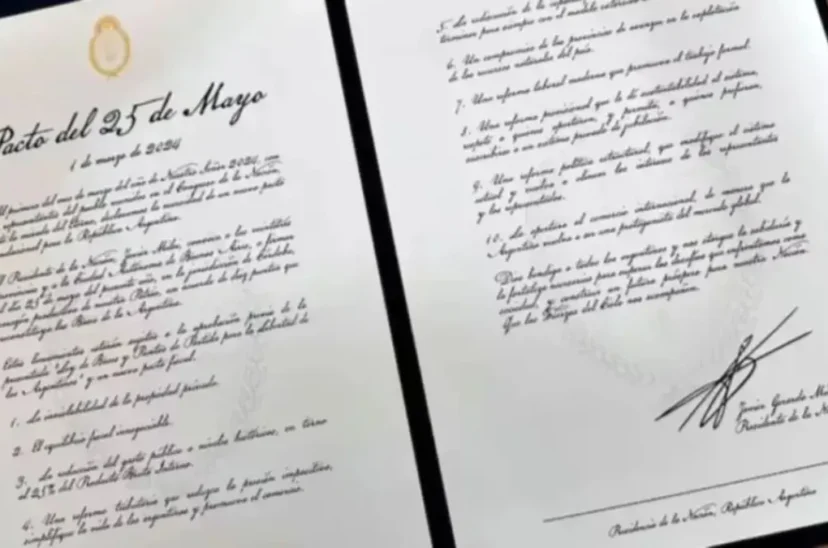 Pacto del 25 de Mayo
1 de marzo de 2024
primero del mes de marzo del año de Nuestro Señor 2024, con
representantes del pueblo reunidos en el Congreso de la Nación,
la mirada del Eterno, declaramos la necesidad de un nuevo pacto
fundacional para la República Argentina.
El Presidente de la Nación, Javier Milei, convoca a los
provincias y a la Ciudad Autónoma de Buenos Aires, a firmar
el día 25 de mayo del presente año, en la jurisdicción de Córdoba,
de nuestra Patria, un acuerdo de diez puntos que
las Bases de la Argentina.
Estos lineamientos estarán sujetos a la aprobación previa de la
presentada "Ley de Bases y Puntos de Partida para la Libertad de
los Argentinos" y un nuevo pacto fiscal.
1. La inviolabilidad de la propiedad privada.
2. El equilibrio fiscal innegociable.
3. La reducción del gasto público a niveles históricos, en torno
al 25% del Producto Bruto Interno.
4. Una reforma tributaria que reduzca la presión impositiva,
simplifique la vida de los argentinos y promueva el comercio.
5. La rediscusión de la
terminar para siempre con el modelo
6. Un compromiso de las provincias de avanzar en la explotación
de los recursos naturales del país.
7. Una reforma laboral moderna que promueva el trabajo formal.
8. Una reforma previsional que le dé sustentabilidad al sistema,
respete a quienes aportaron, y permita, a quienes prefieran,
suscribirse a un sistema privado de jubilación.
9. Una reforma política estructural, que modifique el sistema
actual y vuelva a alinear los intereses de los representantes
y los representados.
10. La apertura al comercio internacional, de manera que la
Argentina vuelva a ser una protagonista del mercado global.
Dios bendiga a todos los argentinos y nos otorgue la sabiduría y
la fortaleza necesarias para superar los desafíos que enfrentamos como
sociedad, y construir un futuro próspero para nuestra Nación.
Que las Fuerzas del Cielo nos acompañen.
Javier Gerardo
Presidente de la
Presidencia de la Nación, República Argentina